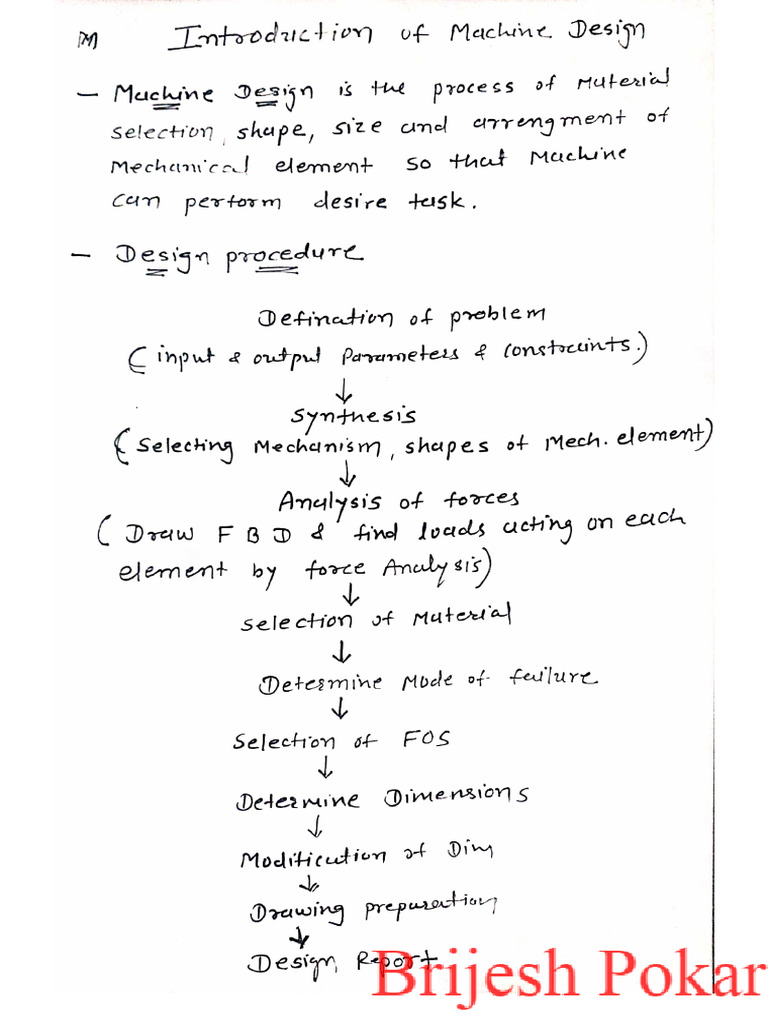 [M] Introduction of Machine Design
- Machine Design is the process of Material
selection, shape, size and arrengment of
Mechanical element so that Machine
can perform desire task.
- Design procedure
Defination of problem
(input & output Parameters & Constraints.)
↓
Synthesis
(Selecting Mechanism, shapes of Mech. element)
↓
Analysis of forces
(Draw F B D & find loads acting on each
element by force Analysis)
↓
Selection of Material
↓
Determine Mode of failure
↓
Selection of FOS
↓
Determine Dimensions
↓
Modification of Dim
↓
Drawing preparation
↓
Design Report
Brijesh Pokar